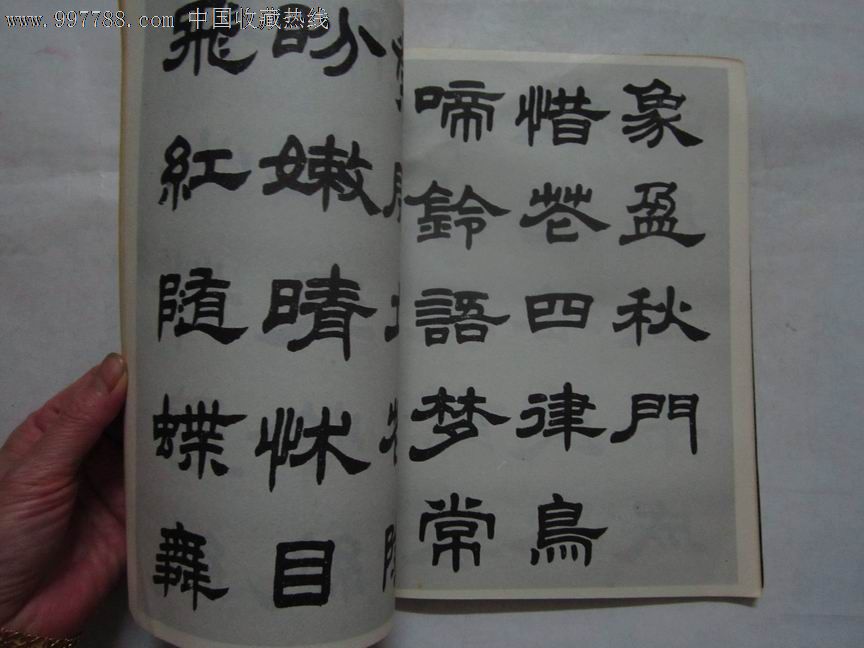 www.997788.com 中国收藏热线
象盈秋門
惜花四律鳥
啼鈴語梦常
盼嫩晴怵目
飛紅随蝶舞